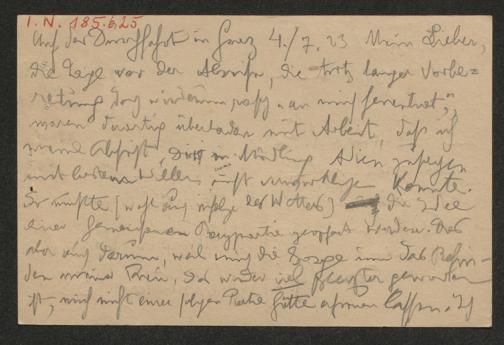 I. N. 185.625
Auf der Durchfahrt in Graz 4./7. 23 Mein Lieber,
die Tage vor der Abreise, die trotz langer Vorbe=
reitung doch wiederum rasch an mich herantrat,
waren derartig überladen mit Arbeit, daß ich
meine Absicht, Dir in Mödling Adieu zu sagen
mit bestem Willen nicht verwirklichen konnte.
So mußte (wohl auch infolge des Wetters) die Idee
einer gemeinsamen Bergpartie geopfert werden. Das
aber auch darum, weil mich die Sorge um das Befin-
den meiner Frau, das wieder viel schlechter geworden
ist, mich nicht einer solchen Partie hätte erfreuen lassen. Ich